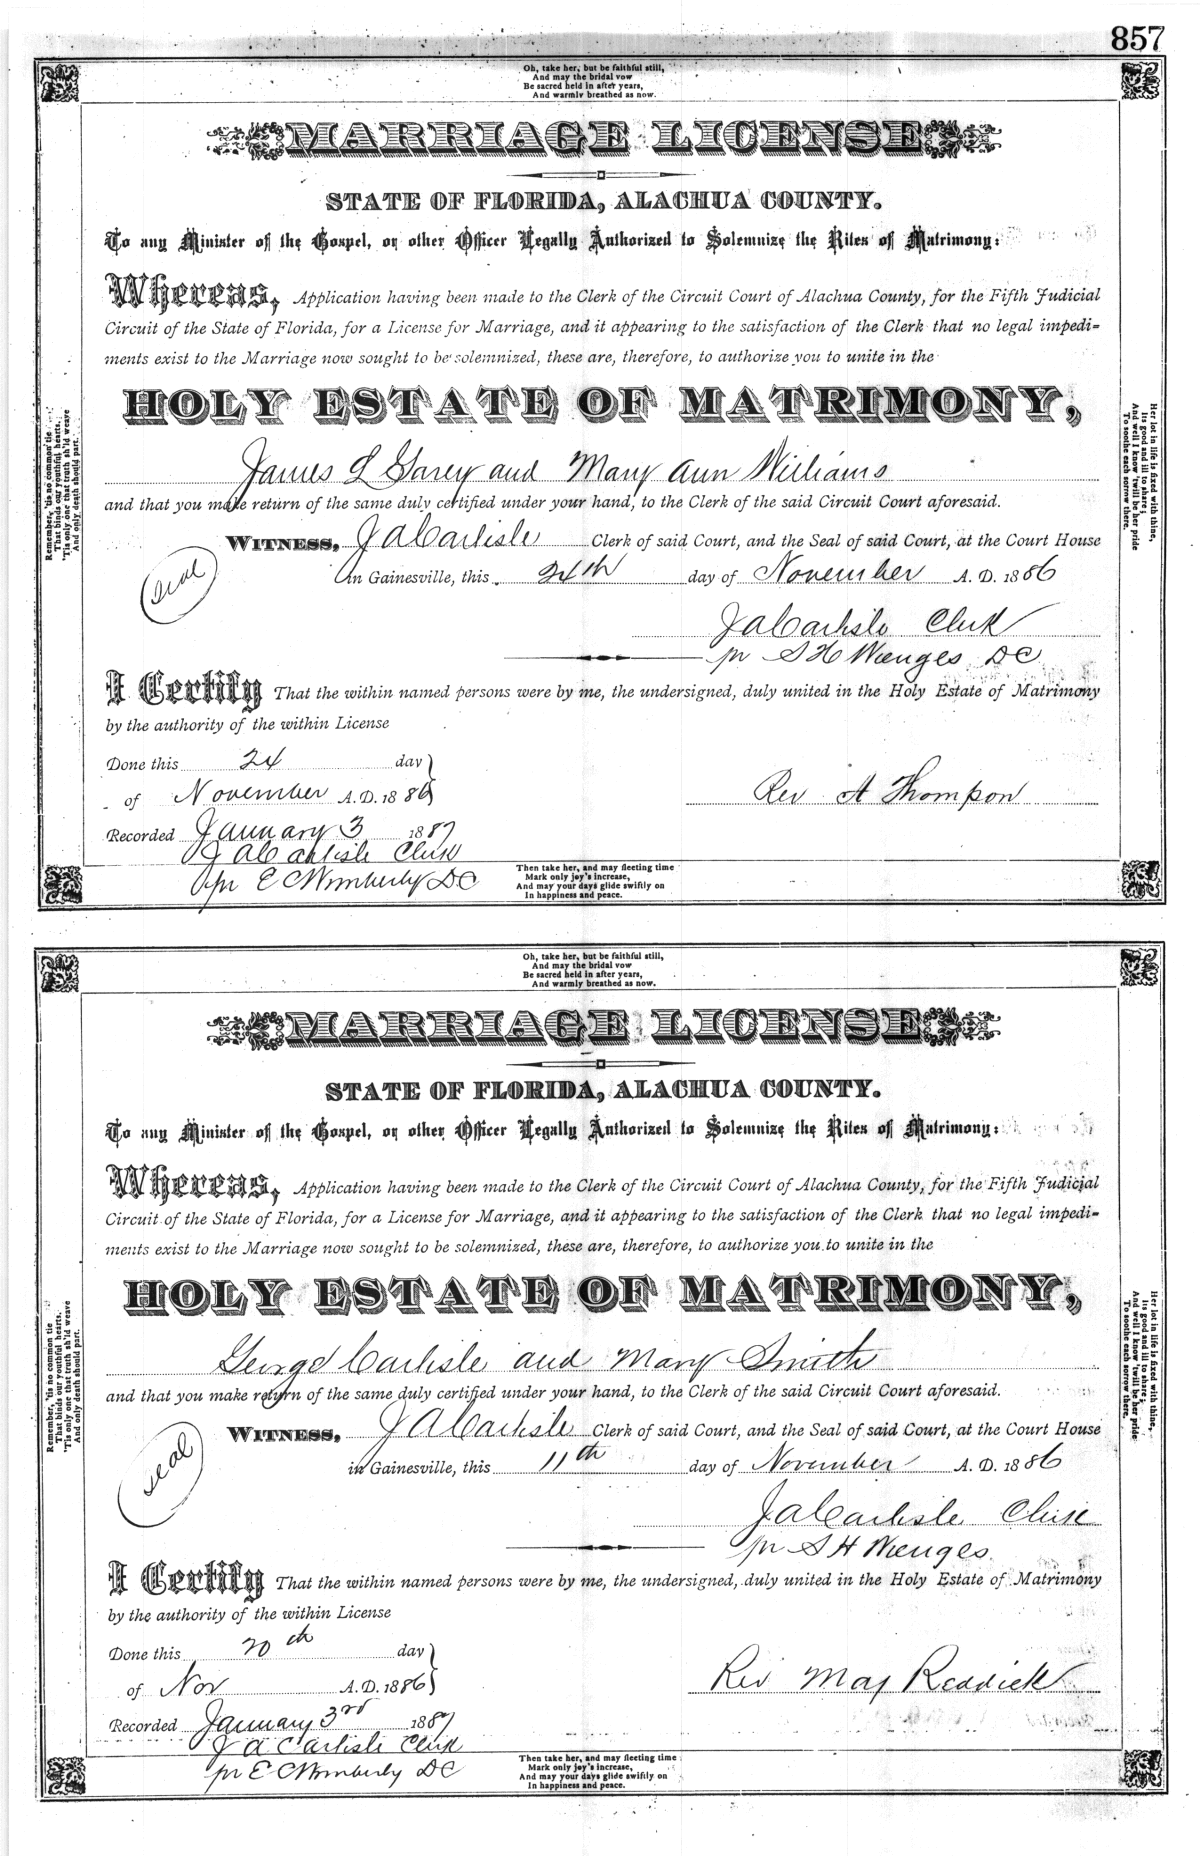 857
Oh, take her, but be faithful still,
And may the bridal vow
Be sacred held in after years,
And warmly breathed as now.
MARRIAGE LICENSE
STATE OF FLORIDA, ALACHUA COUNTY.
To any Minister of the Gospel, or other Officer Legally Authorized to Solemnize the Rites of Matrimony:
Whereas, Application having been made to the Clerk of the Circuit Court of Alachua County, for the Fifth Judicial
Circuit of the State of Florida, for a License for Marriage, and it appearing to the satisfaction of the Clerk that no legal impedi-
ments exist to the Marriage now sought to be solemnized, these are, therefore, to authorize you to unite in the
HOLY ESTATE OF MATRIMONY,
James L and Mary Ann Williams
and that you make return of the same duly certified under your hand, to the Clerk of the said Circuit Court aforesaid.
WITNESS, J A Carlisle Clerk of said Court, and the Seal of said Court, at the Court House
seal
in Gainesville, this 24th day of November A. D. 1886
J A Carlisle Clerk
pr S H Wienges DC
I Certify That the within named persons were by me, the undersigned, duly united in the Holy Estate of Matrimony
by the authority of the within License
Done this 24 day
of November A. D. 1886
Rev A Thompson
Recorded January 3 1887
J A Carlisle Clerk
pr E C Wimberly DC
Remember, 'tis no common tie
That binds our youthful hearts.
'Tis only one that truth sh'ld weave
And only death should part.
Her lot in life is fixed with thine,
Its good and ill to share;
And well I know 'twill be her pride
To soothe each sorrow there.
Then take her, and may fleeting time
Mark only joy's increase,
And may your days glide swiftly on
In happiness and peace.
Oh, take her, but be faithful still,
And may the bridal vow
Be sacred held in after years,
And warmly breathed as now.
MARRIAGE LICENSE
STATE OF FLORIDA, ALACHUA COUNTY.
To any Minister of the Gospel, or other Officer Legally Authorized to Solemnize the Rites of Matrimony:
Whereas, Application having been made to the Clerk of the Circuit Court of Alachua County, for the Fifth Judicial
Circuit of the State of Florida, for a License for Marriage, and it appearing to the satisfaction of the Clerk that no legal impedi-
ments exist to the Marriage now sought to be solemnized, these are, therefore, to authorize you to unite in the
HOLY ESTATE OF MATRIMONY,
George Carlisle and Mary Smith
and that you make return of the same duly certified under your hand, to the Clerk of the said Circuit Court aforesaid.
WITNESS, J A Carlisle Clerk of said Court, and the Seal of said Court, at the Court House
seal
in Gainesville, this 11th day of November A. D. 1886
J A Carlisle Clerk
pr S H Wienges
I Certify That the within named persons were by me, the undersigned, duly united in the Holy Estate of Matrimony
by the authority of the within License
Done this 20th day
of Nov A. D. 1886
Rev May Reddick
Recorded January 3rd 1887
J A Carlisle Clerk
pr E C Wimberly DC
Remember, 'tis no common tie
That binds our youthful hearts.
'Tis only one that truth sh'ld weave
And only death should part.
Her lot in life is fixed with thine,
Its good and ill to share;
And well I know 'twill be her pride
To soothe each sorrow there.
Then take her, and may fleeting time
Mark only joy's increase,
And may your days glide swiftly on
In happiness and peace.